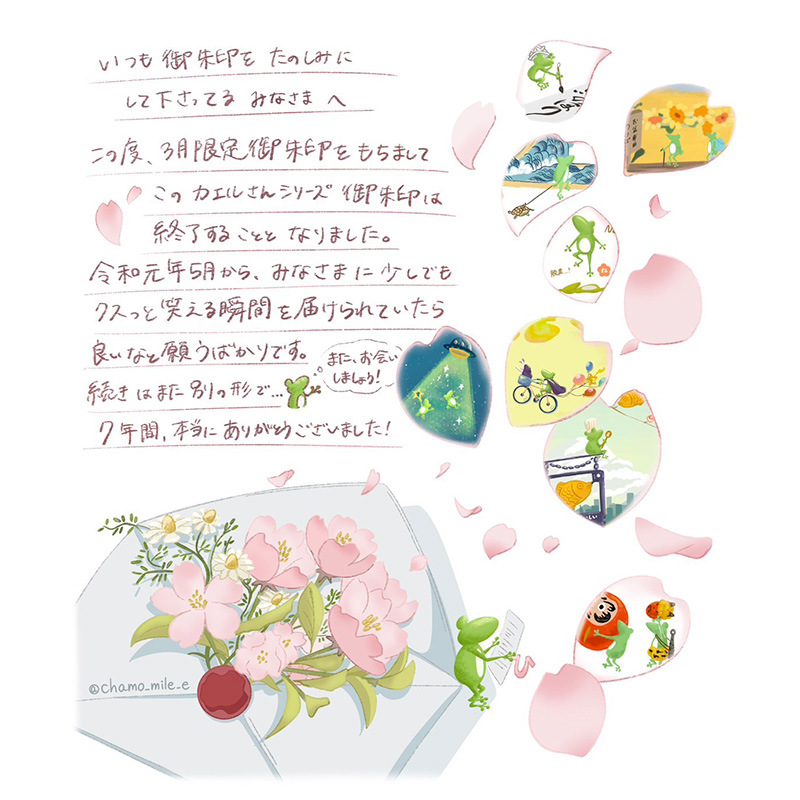 いつも御朱印をたのしみに
して下さってる みなさまへ
この度、3月限定御朱印をもちまして
このカエルさんシリーズ御朱印は
終了することとなりました。
令和元年5月から、みなさまに少しでも
クスっと笑える瞬間を届けられていたら
良いなと願うばかりです。
続きはまた別の形で…
また、お会い
しましょう!
7年間、本当にありがとうございました!
@chamo_mile_e